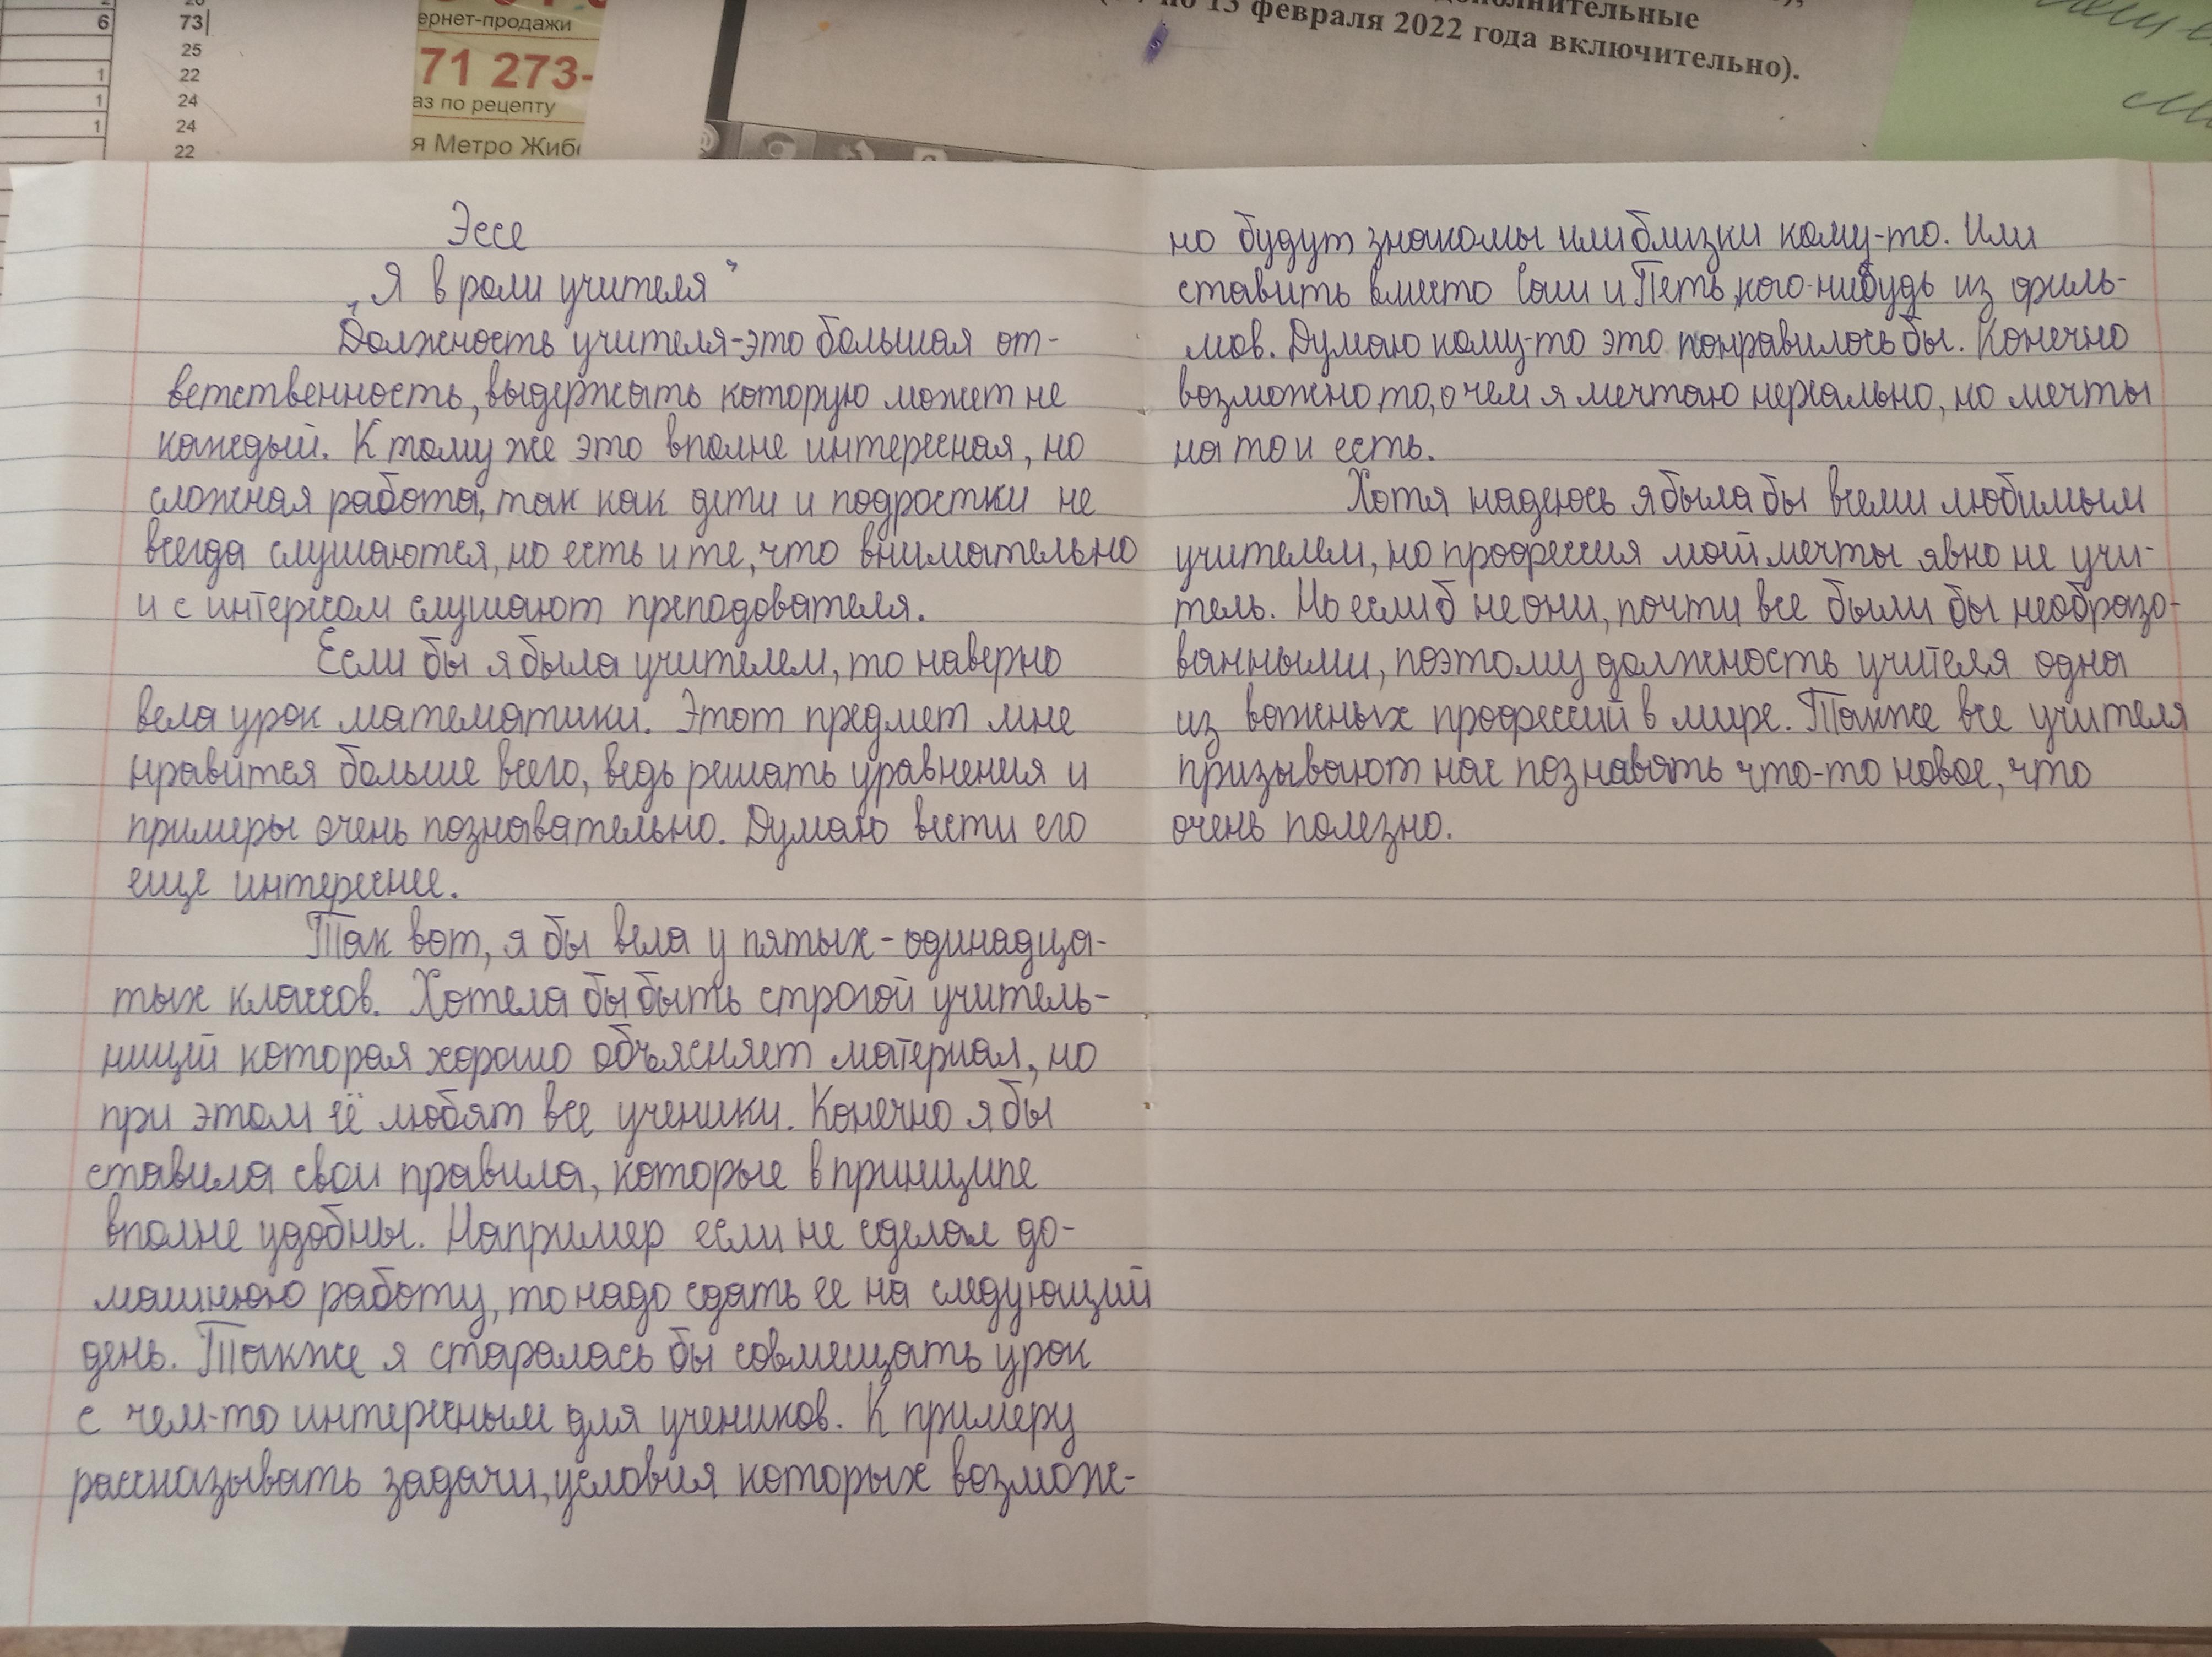 6 73
25
1 22
1 24
1 24
22
ернет-продажи
71 273-
аз по рецепту
я Метро Жибе
по 15 февраля 2022 года включительно).
Эссе
„Я в роли учителя"
Должность учителя-это большая от-
ветственность, выдержать которую может не
каждый. К тому же это вполне интересная, но
сложная работа, так как дети и подростки не
всегда слушаются, но есть и те, что внимательно
и с интересом слушают преподователя.
Если бы я была учителем, то наверно
вела урок математики. Этот предмет мне
нравится больше всего, ведь решать уравнения и
примеры очень познавательно. Думаю вести его
еще интереснее.
Так вот, я бы вела у пятых-одинадца-
тых классов. Хотела бы быть строгой учитель-
ницей которая хорошо объясняет материал, но
при этом её любят все ученики. Конечно я бы
ставила свои правила, которые в принципе
вполне удобны. Например если не сделал до-
машнюю работу, то надо сдать ее на следующий
день. Также я старалась бы совмещать урок
с чем-то интересным для учеников. К примеру
рассказывать задачи, условия которых возмож-
но будут знакомы или близки кому-то. Или
ставить вместо Саш и Петь, кого-нибудь из филь-
мов. Думаю кому-то это понравилось бы. Конечно
возможно то, о чем я мечтаю нереально, но мечты
на то и есть.
Хотя надеюсь я была бы всеми любимым
учителем, но профессия моей мечты явно не учи-
тель. Но если б не они, почти все были бы необразо-
ванными, поэтому должность учителя одна
из важных профессий в мире. Также все учителя
призывают нас познавать что-то новое, что
очень полезно.